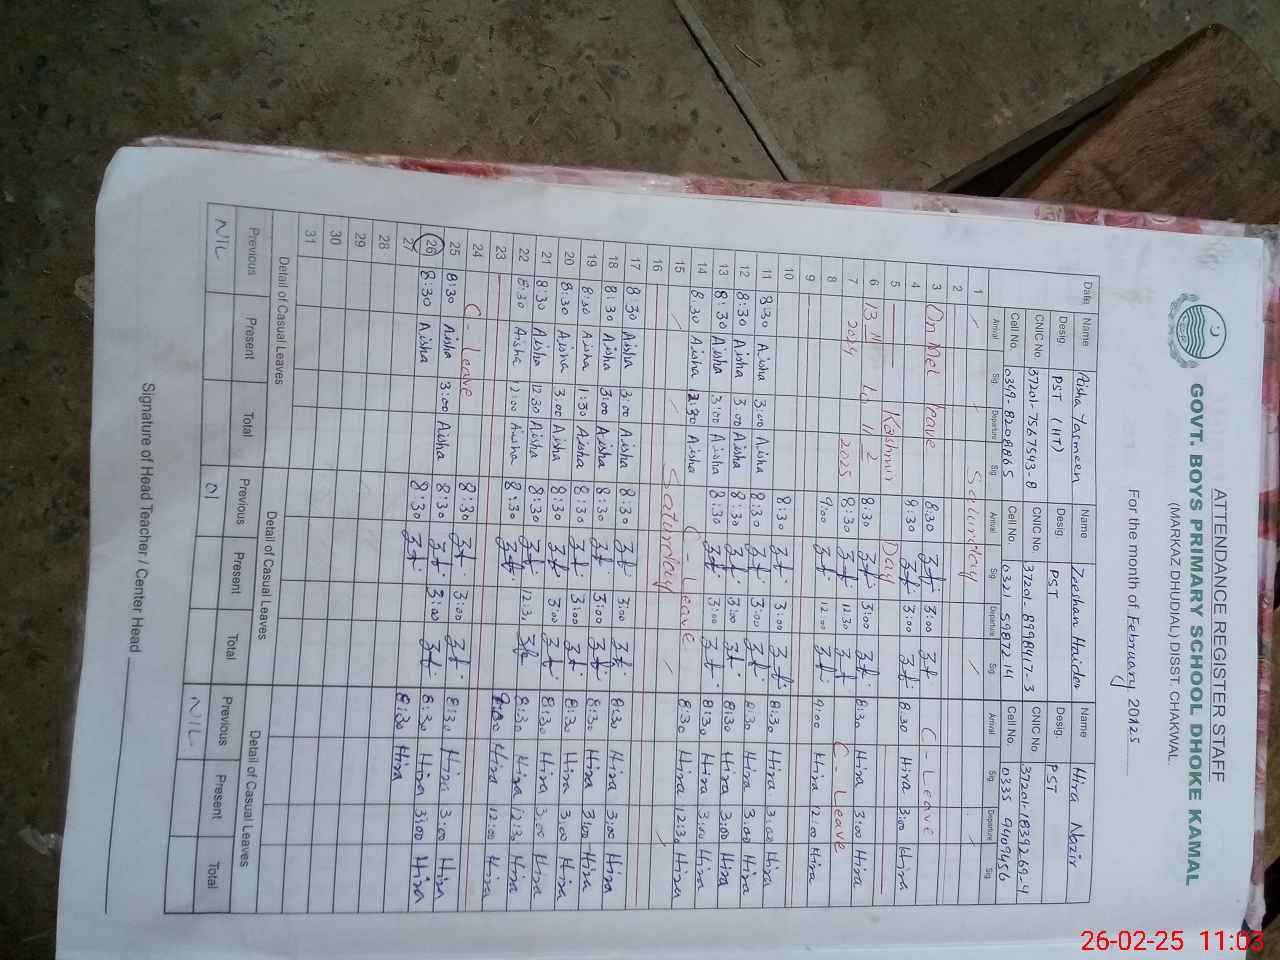 ATTENDANCE REGISTER STAFF
GOVT. BOYS PRIMARY SCHOOL DHOKE KAMAL
(MARKAZ DHUDIAL) DISST. CHAKWAL.
For the month of February 2025
Date Name Aisha Yasmeen Name Zeeshan Haider Name Hira Nazir
Desig. PST (HT) Desig. PST Desig. PST
CNIC No. 37201-7567543-8 CNIC No. 37201-8998417-3 CNIC No. 37201-1839269-4
Cell No. 0349-8208865 Cell No. 0321 5987214 Cell No. 0335 9409456
Arrival Sig. Departure Sig. Arrival Sig. Departure Sig. Arrival Sig. Departure Sig.
1 Saturday
2
3 On Mel leave 8:30 3:00 C - Leave
4 8:30 3:00 8:30 Hira 3:00 Hira
5 Kashmir Day
6 13 11 to 11 2 8:30 3:00 8:30 Hira 3:00 Hira
7 2024 2025 8:30 12:30 C - Leave
8 9:00 12:00 9:00 Hira 12:00 Hira
9
10 8:30 3:00 8:30 Hira 3:00 Hira
11 8:30 Aisha 3:00 Aisha 8:30 3:00 8:30 Hira 3:00 Hira
12 8:30 Aisha 3:00 Aisha 8:30 3:00 8:30 Hira 3:00 Hira
13 8:30 Aisha 3:00 Aisha 8:30 3:00 8:30 Hira 3:00 Hira
14 8:30 Aisha 12:30 Aisha C - Leave 8:30 Hira 12:30 Hira
15 Saturday
16
17 8:30 Aisha 3:00 Aisha 8:30 3:00 8:30 Hira 3:00 Hira
18 8:30 Aisha 3:00 Aisha 8:30 3:00 8:30 Hira 3:00 Hira
19 8:30 Aisha 1:30 Aisha 8:30 3:00 8:30 Hira 3:00 Hira
20 8:30 Aisha 3:00 Aisha 8:30 3:00 8:30 Hira 3:00 Hira
21 8:30 Aisha 12:30 Aisha 8:30 12:30 8:30 Hira 12:30 Hira
22 8:30 Aisha 12:00 Aisha 8:30 Hira 12:00 Hira
23
24 C - Leave 8:30 3:00 8:30 Hira 3:00 Hira
25 8:30 Aisha 3:00 Aisha 8:30 3:00 8:30 Hira 3:00 Hira
26 8:30 Aisha 8:30 8:30 Hira
27
28
29
30
31
Detail of Casual Leaves Detail of Casual Leaves Detail of Casual Leaves
Previous Present Total Previous Present Total Previous Present Total
NIL 01 NIL
Signature of Head Teacher / Center Head
26-02-25 11:03